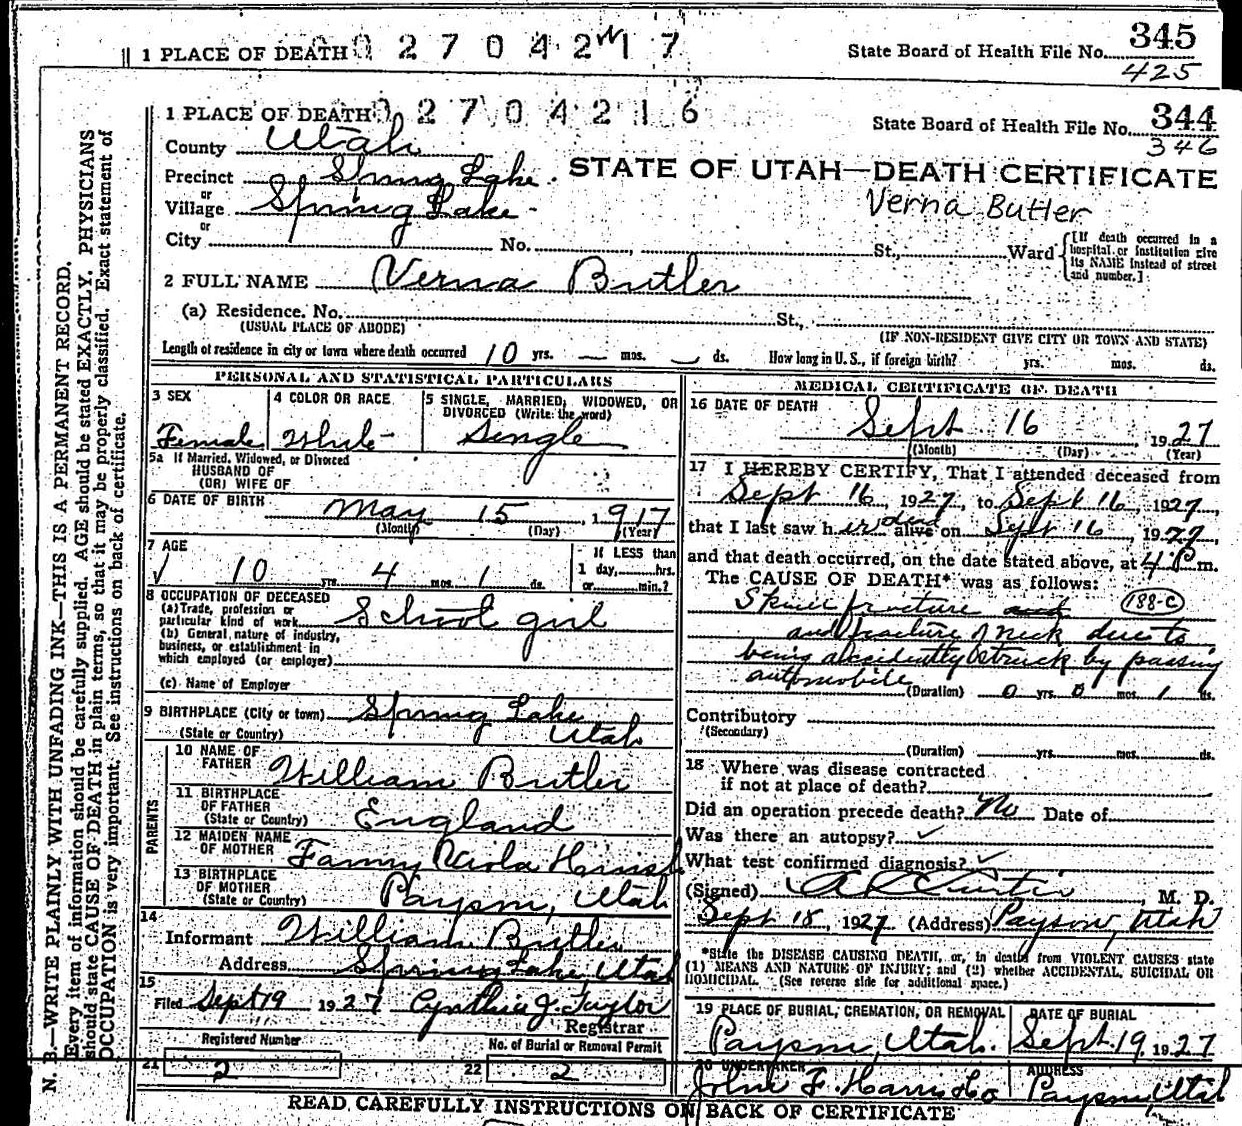 1 PLACE OF DEATH 0 2 7 0 4 2 1 7 State Board of Health File No. 345
425
1 PLACE OF DEATH 0 2 7 0 4 2 1 6 State Board of Health File No. 344
346
County Utah
Precinct Spring Lake. STATE OF UTAH—DEATH CERTIFICATE
or
Village Spring Lake Verna Butler
or
City No. St., Ward [If death occurred in a hospital or institution give its NAME instead of street and number.]
2 FULL NAME Verna Butler
(a) Residence. No. St.,
(USUAL PLACE OF ABODE) (IF NON-RESIDENT GIVE CITY OR TOWN AND STATE)
Length of residence in city or town where death occurred 10 yrs. — mos. — ds. How long in U. S., if foreign birth? yrs. mos. ds.
PERSONAL AND STATISTICAL PARTICULARS
3 SEX
Female
4 COLOR OR RACE
White
5 SINGLE, MARRIED, WIDOWED, OR
DIVORCED (Write the word)
Single
5a If Married, Widowed, or Divorced
HUSBAND OF
(OR) WIFE OF
6 DATE OF BIRTH May 15, 1917
(Month) (Day) (Year)
7 AGE If LESS than
√ 10 yrs. 4 mos. 1 ds. 1 day, hrs.
or min.?
8 OCCUPATION OF DECEASED
(a) Trade, profession or
particular kind of work School girl
(b) General nature of industry,
business, or establishment in
which employed (or employer)
(c) Name of Employer
9 BIRTHPLACE (City or town) Spring Lake
(State or Country) Utah
PARENTS
10 NAME OF
FATHER William Butler
11 BIRTHPLACE
OF FATHER
(State or Country) England
12 MAIDEN NAME
OF MOTHER Fanny Viola
13 BIRTHPLACE
OF MOTHER
(State or Country) Payson, Utah
14
Informant William Butler
Address Spring Lake, Utah
15
Filed Sept 19 1927 Cynthia J. Taylor
Registrar
Registered Number No. of Burial or Removal Permit
21 2 22 2
MEDICAL CERTIFICATE OF DEATH
16 DATE OF DEATH
Sept 16, 1927
(Month) (Day) (Year)
17 I HEREBY CERTIFY, That I attended deceased from
Sept 16, 1927, to Sept 16, 1927,
that I last saw her dead alive on Sept 16, 1927,
and that death occurred, on the date stated above, at 4 P m.
The CAUSE OF DEATH* was as follows:
Skull fracture and 188-C
and fracture of neck due to
being accidently struck by passing
automobile
(Duration) 0 yrs. 0 mos. 1 ds.
Contributory
(Secondary)
(Duration) yrs. mos. ds.
18 Where was disease contracted
if not at place of death?
Did an operation precede death? No Date of
Was there an autopsy? ✓
What test confirmed diagnosis? ✓
(Signed) A L Curtis, M. D.
Sept 18, 1927 (Address) Payson, Utah
*State the DISEASE CAUSING DEATH, or, in deaths from VIOLENT CAUSES state
(1) MEANS AND NATURE OF INJURY; and (2) whether ACCIDENTAL, SUICIDAL OR
HOMICIDAL. (See reverse side for additional space.)
19 PLACE OF BURIAL, CREMATION, OR REMOVAL DATE OF BURIAL
Payson, Utah. Sept. 19, 1927
20 UNDERTAKER ADDRESS
John F. Harris Co Payson, Utah
READ CAREFULLY INSTRUCTIONS ON BACK OF CERTIFICATE
N. B.—WRITE PLAINLY WITH UNFADING INK—THIS IS A PERMANENT RECORD.
Every item of information should be carefully supplied. AGE should be stated EXACTLY. PHYSICIANS
should state CAUSE OF DEATH in plain terms, so that it may be properly classified. Exact statement of
OCCUPATION is very important. See instructions on back of certificate.